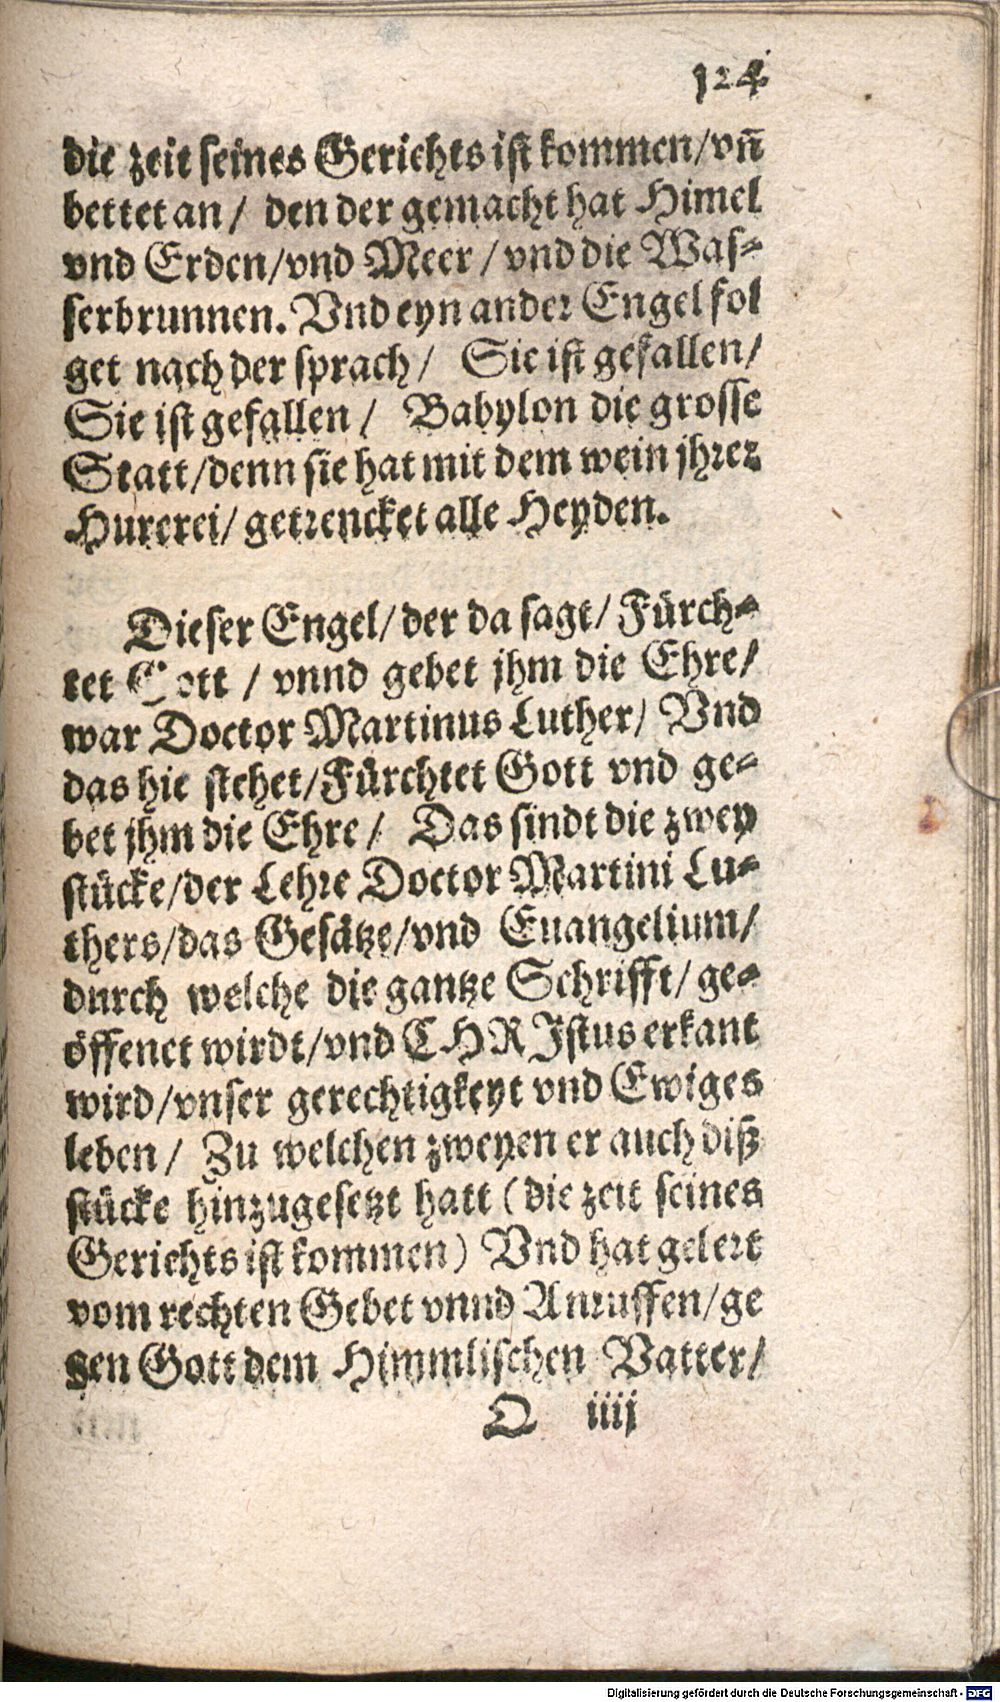 124
die zeit seines Gerichts ist kommen/vñ
bettet an/ den der gemacht hat Himel
vnd Erden/vnd Meer/vnd die Was-
serbrunnen. Vnd eyn ander Engel fol
get nach der sprach/ Sie ist gefallen/
Sie ist gefallen/ Babylon die grosse
Statt/denn sie hat mit dem wein jhrer
Hurerei/ getrencket alle Heyden.
Dieser Engel/der da sagt/ Fürch-
tet Gott / vnnd gebet jhm die Ehre/
war Doctor Martinus Luther/ Vnd
das hie stehet/Fürchtet Gott vnd ge-
bet jhm die Ehre/ Das sindt die zwey
stücke/der Lehre Doctor Martini Lu-
thers/das Gesätze/vnd Euangelium/
durch welche die gantze Schrifft/ ge-
öffenet wirdt/vnd CHRIstus erkant
wird/vnser gerechtigkeyt vnd Ewiges
leben/ Zu welchen zweyen er auch diß
stücke hinzugesetzt hatt (die zeit seines
Gerichts ist kommen) Vnd hat gelert
vom rechten Gebet vnnd Anruffen/ge
gen Gott dem Himmlischen Vatter/
Q iiij
Digitalisierung gefördert durch die Deutsche Forschungsgemeinschaft - DFG